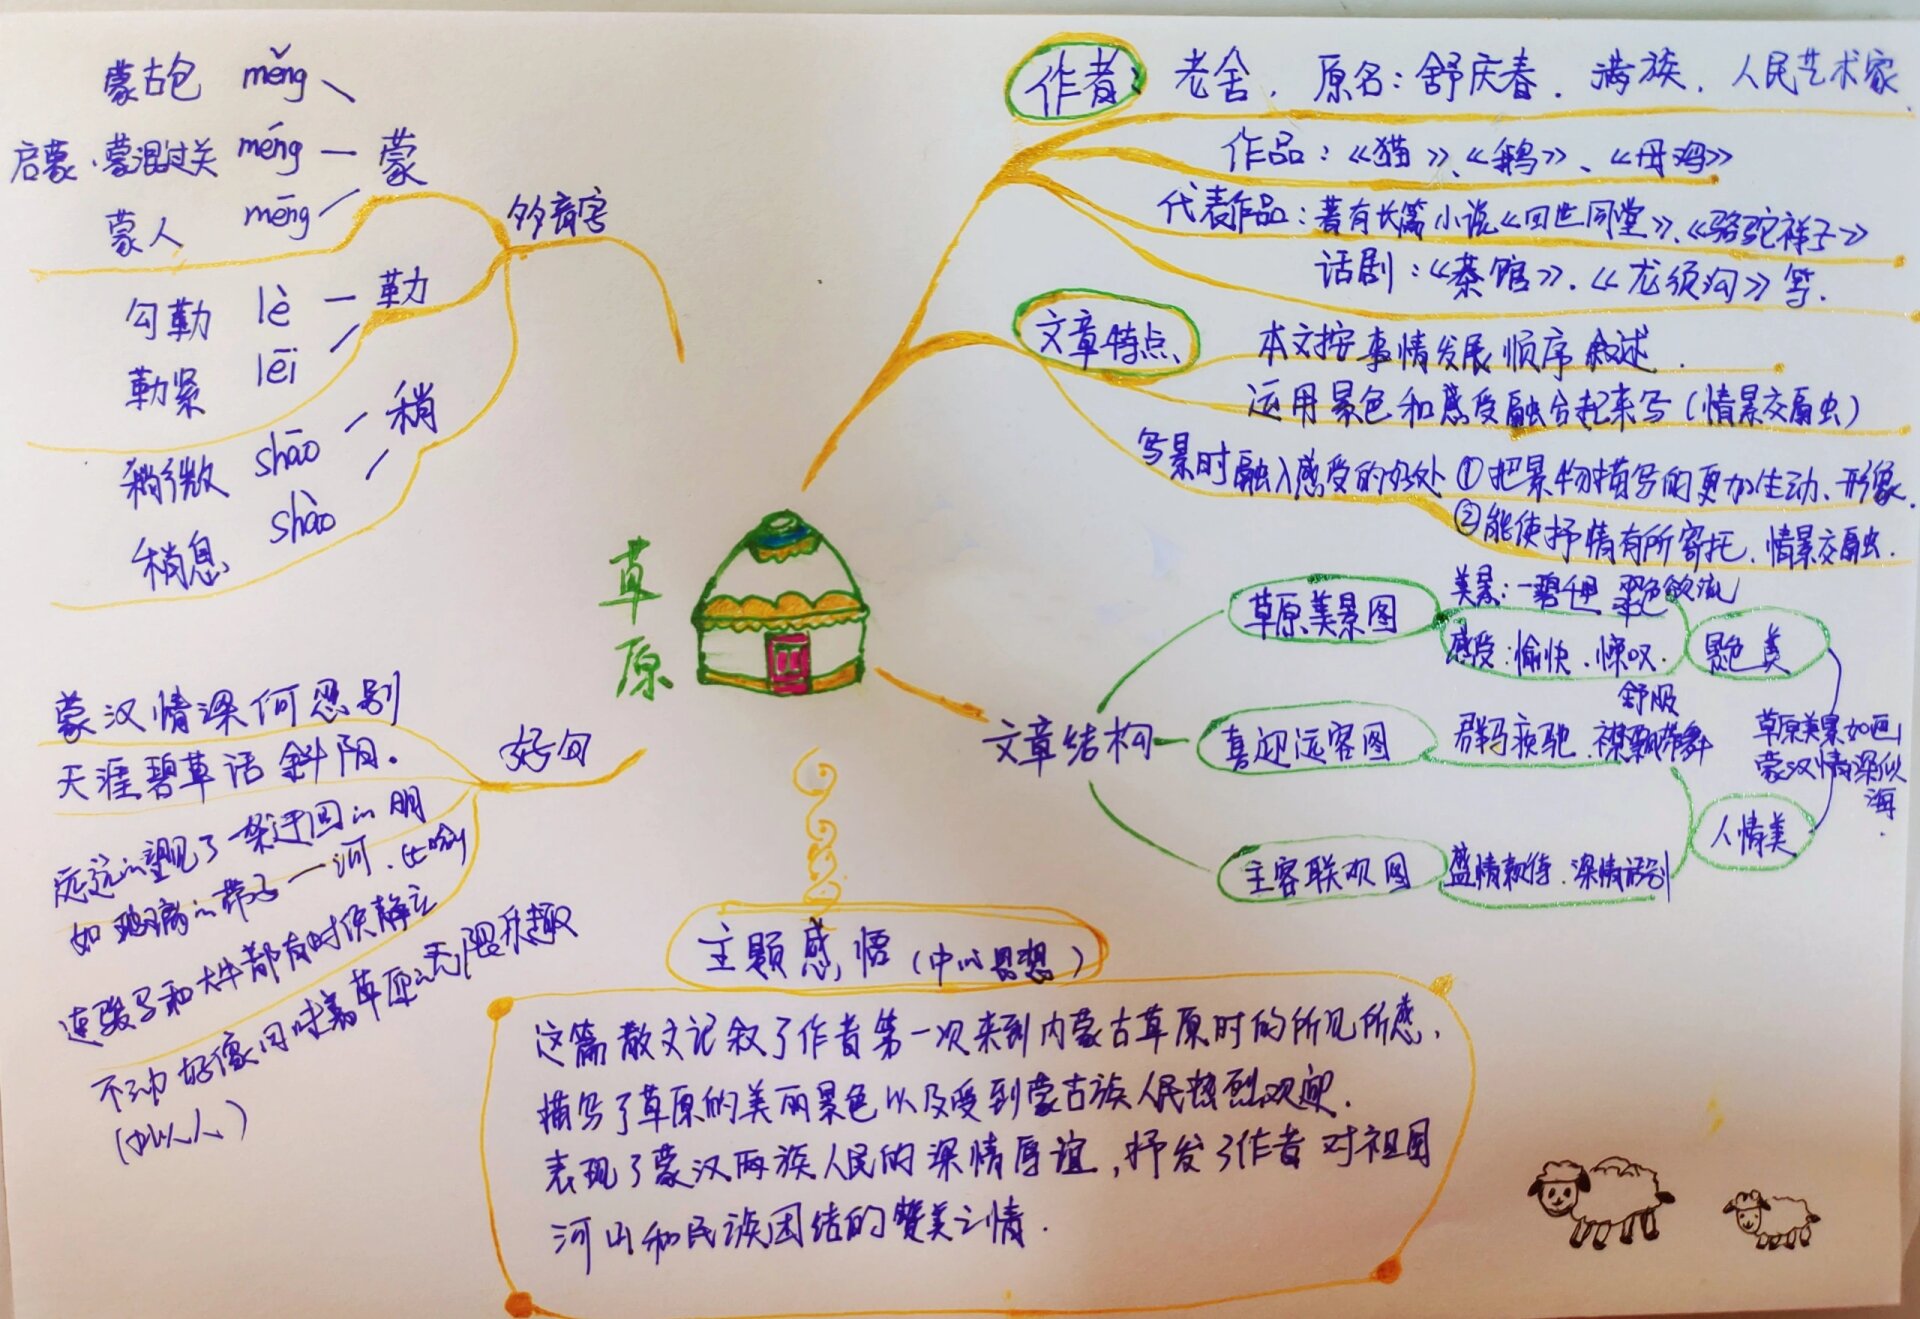 蒙古包 měng
启蒙·蒙混过关 méng
蒙人 mēng
蒙
多音字
勾勒 lè
勒紧 lēi
勒
稍微 shāo
稍息 shào
稍
作者
老舍，原名：舒庆春．满族．人民艺术家
作品：《猫》、《鹅》、《母鸡》
代表作品：著有长篇小说《四世同堂》、《骆驼祥子》
话剧：《茶馆》．《龙须沟》等．
文章特点
本文按事情发展顺序叙述．
运用景色和感受融合起来写（情景交融）
写景时融入感受的好处①把景物描写的更加生动、形象．
②能使抒情有所寄托．情景交融．
草原
文章结构
草原美景图
美景：一碧千里 翠色欲流
感受：愉快．惊叹．
舒服
景色美
喜迎远客图
群马疾驰．襟飘带舞
主客联欢图
盛情款待．深情话别
人情美
草原美景如画
蒙汉情深似
海．
好句
蒙汉情深何忍别
天涯碧草话斜阳．
远远的望见了一条迂回的明
如玻璃的带子一河．（比喻）
连骏马和大牛都有时候静立
不动好像回味着草原的无限乐趣
（拟人）
主题感悟（中心思想）
这篇散文记叙了作者第一次来到内蒙古草原时的所见所感．
描写了草原的美丽景色以及受到蒙古族人民热烈欢迎．
表现了蒙汉两族人民的深情厚谊，抒发了作者对祖国
河山和民族团结的赞美之情．